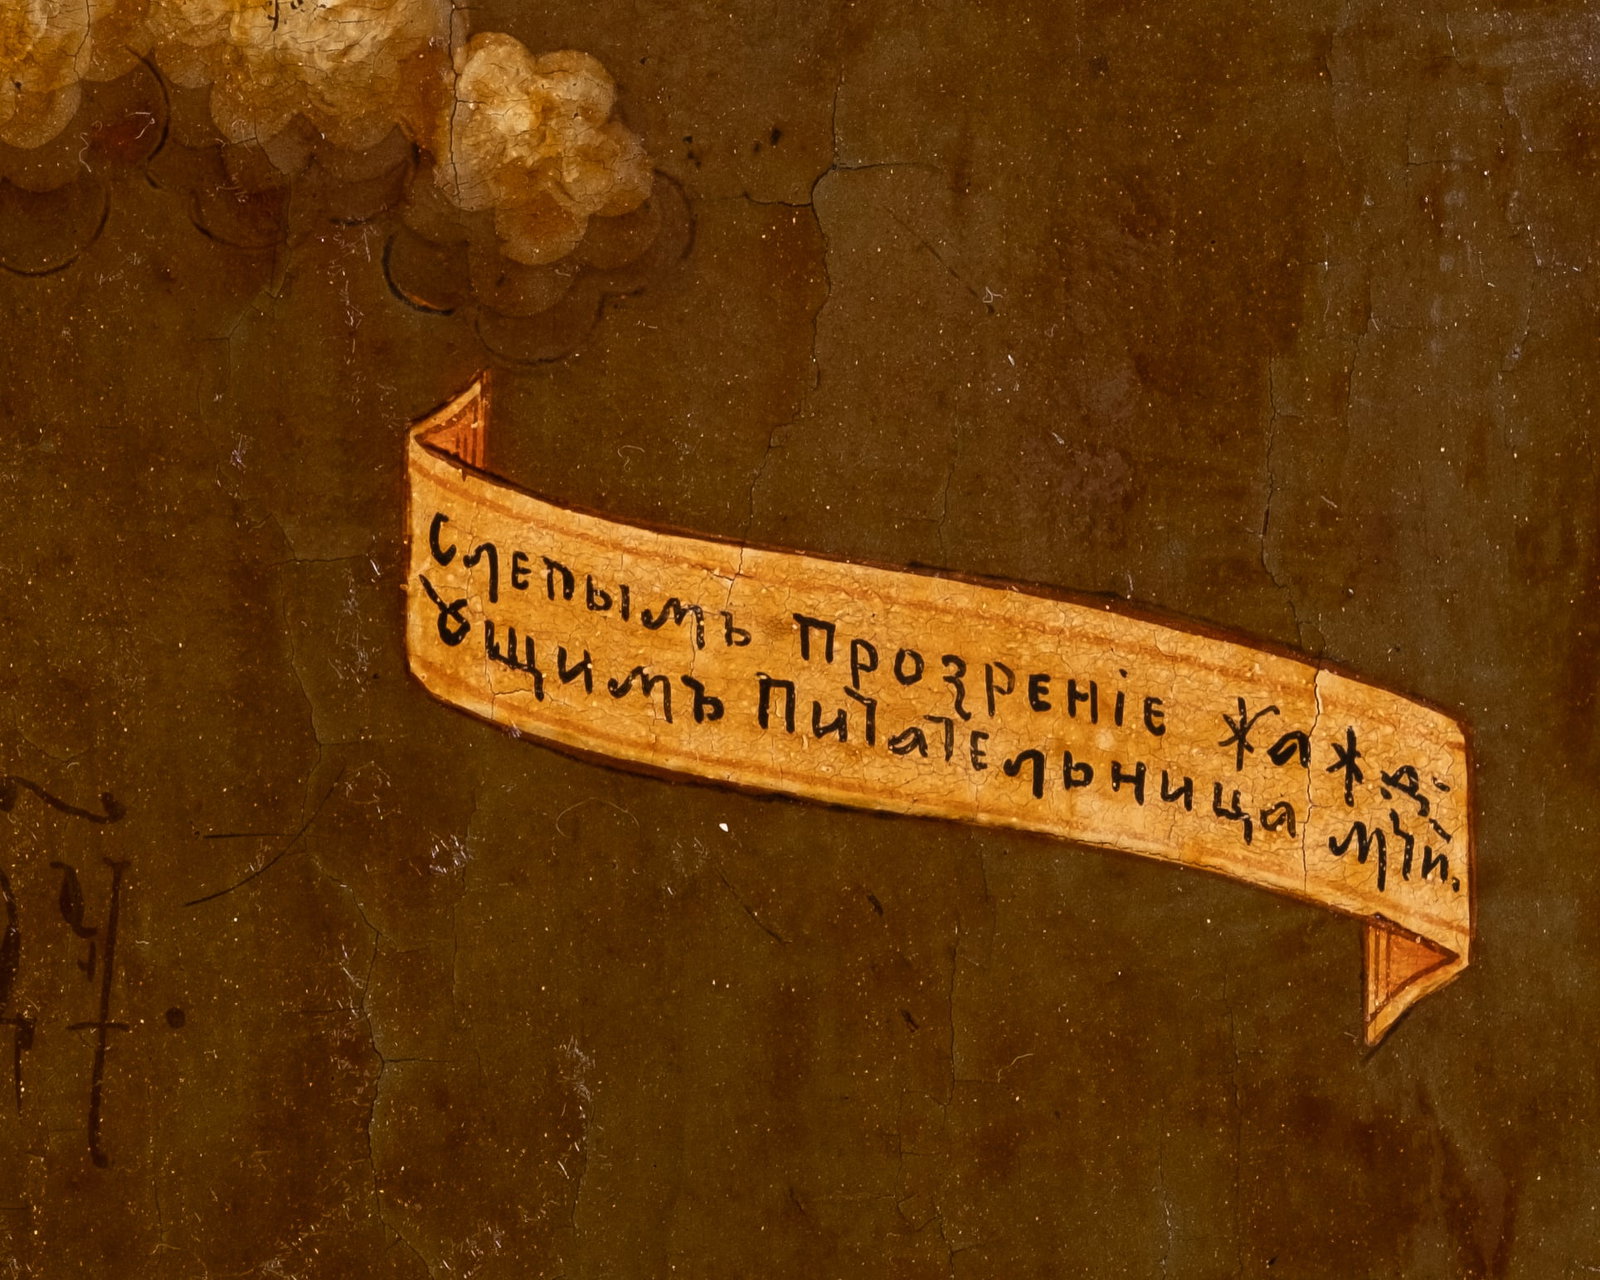 Слепымъ прозреніе жажд-
ꙋщимъ питательница